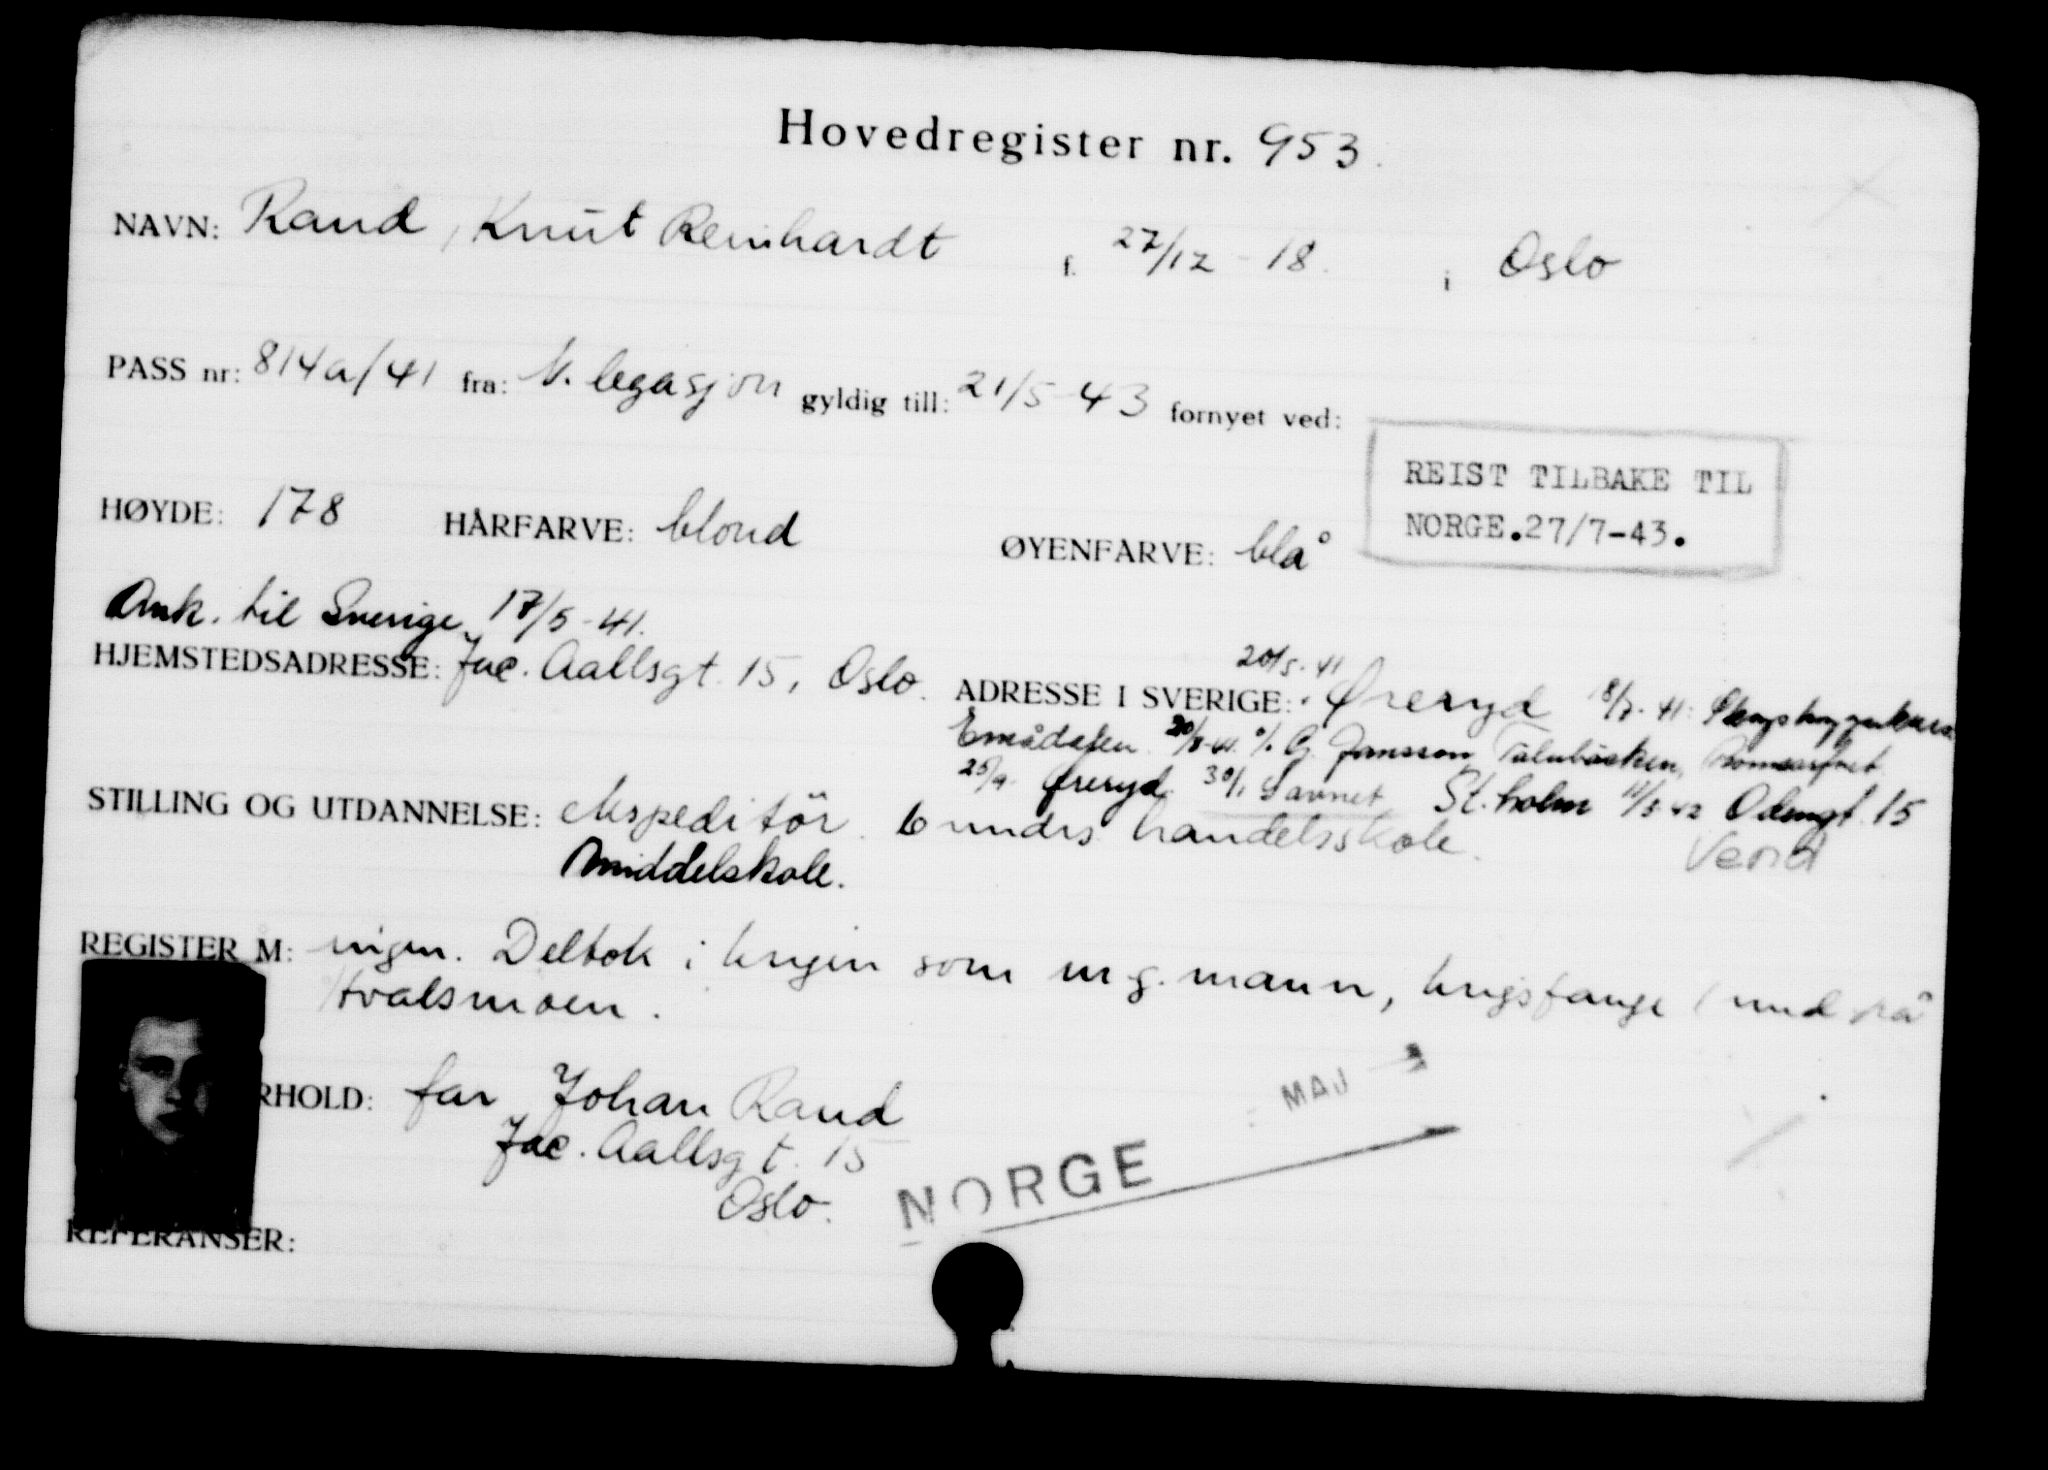 Hovedregister nr. 953
NAVN: Rand, Knut Reinhardt f. 27/12 - 18. i Oslo
PASS nr: 814a/41 fra: N. legasjon gyldig till: 21/5-43 fornyet ved:
REIST TILBAKE TIL
NORGE.27/7-43.
HØYDE: 178 HÅRFARVE: blond ØYENFARVE: blå
Ank. til Sverige 17/5-41.
HJEMSTEDSADRESSE: Jac. Aallsgt. 15, Oslo. ADRESSE I SVERIGE: 20/5-41 Øreryd 18/7-41:
Emådalen 20/8-41 % G. Jansson,
25/9. Øreryd. 30/1 Savnet St.holm 11/5-42 Odengt. 15
STILLING OG UTDANNELSE: ekspeditör. 6 mndrs handelsskole. Vend
Middelskole.
REGISTER M: ingen. Deltok i krigen som m.g. mann, krigsfange 1 mnd på
Hvalsmoen.
RHOLD: far Johan Rand
Jac. Aallsgt. 15
Oslo.
MAJ
NORGE
REFERANSER: